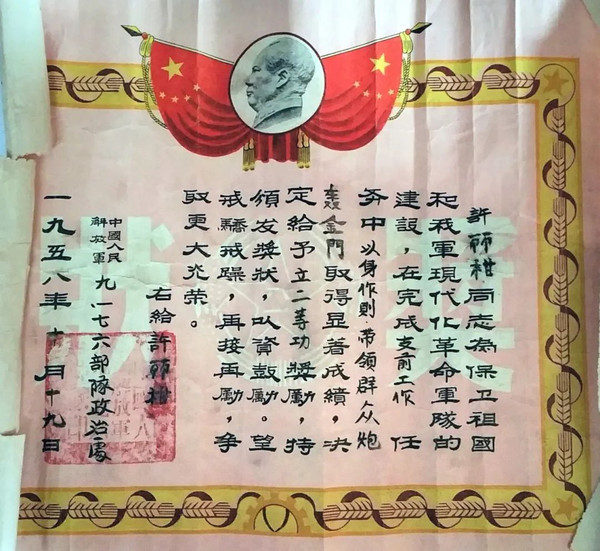 獎狀
許丽柑同志為保卫祖國
和我軍現代化革命軍隊的
建設，在完成支前工作 任
务中以身作則.帶領群众炮
轰金門取得显著成績，决
定給予立二等功獎勵，特
頒发獎狀，以資鼓勵。望
戒驕戒躁，再接再勵，争
取更大光荣。
右給許丽柑
中國人民
解放軍
九一七六部隊政治處
一九五八年十月十九日